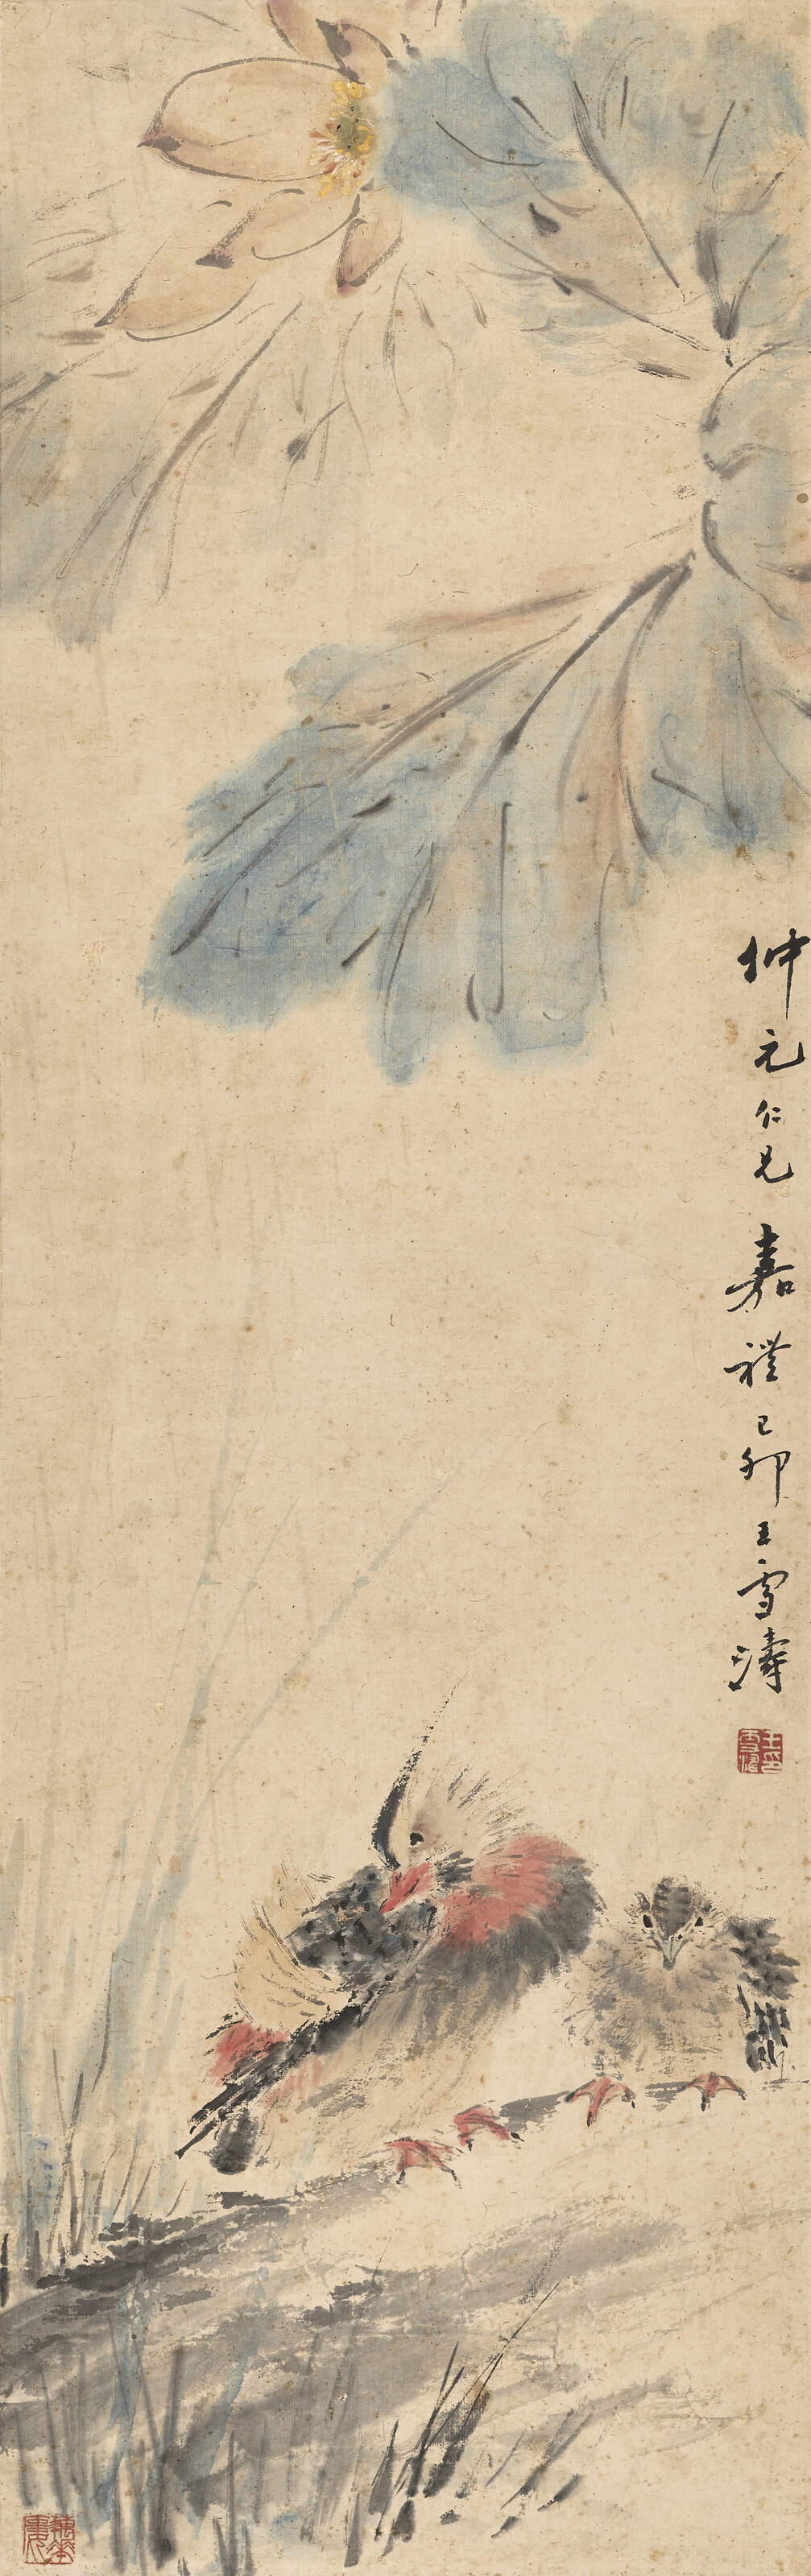 坤元仁兄嘉禮己卯王雪濤
王雪濤印